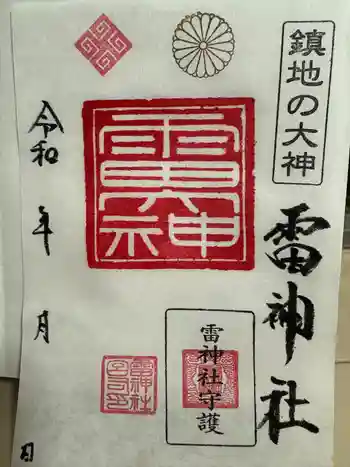 鎮地の大神
雷神社
雷神
雷神社守護
雷神社
宮司之印
令和 年 月 日